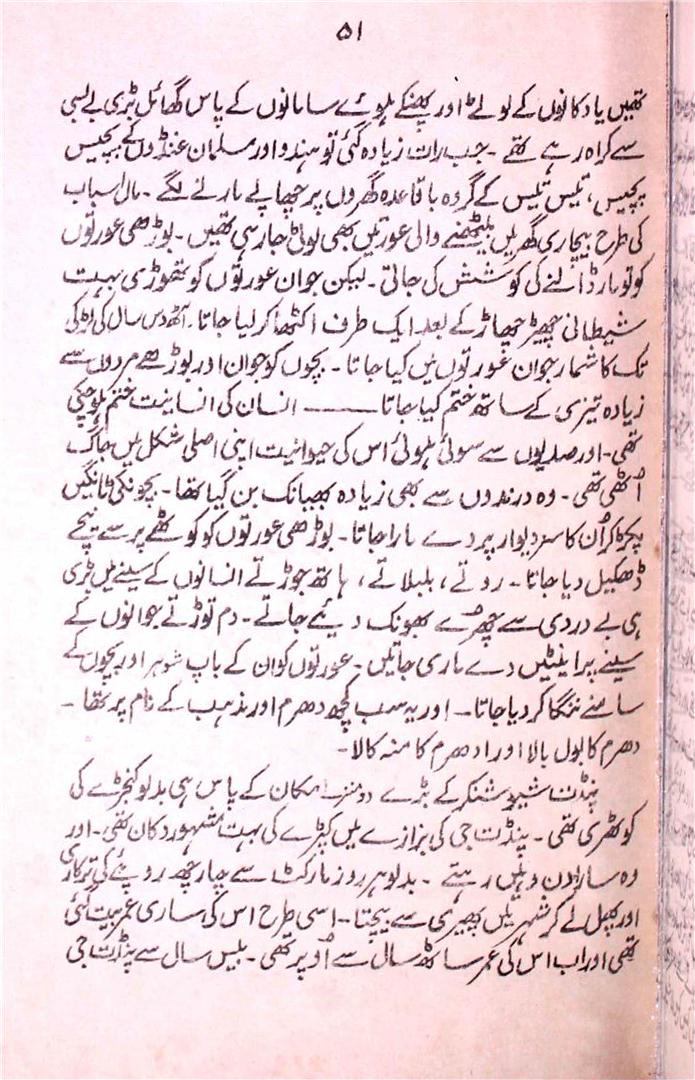 ۵۱
تھیں یا دکانوں کے لوٹے اور پھنکے ہوئے سامانوں کے پاس گھائل بڑی بے بسی
سے کراہ رہے تھے ۔ جب رات زیادہ گئی تو ہندو اور مسلمان غنڈوں کے پچیس
پچیس، تیس تیس کے گروہ باقاعدہ گھروں پر چھاپے مارنے لگے ۔ مال اسباب
کی طرح بیچاری گھر میں بیٹھنے والی عورتیں بھی لوٹی جا رہی تھیں ۔ بوڑھی عورتوں
کو تو مار ڈالنے کی کوشش کی جاتی ۔ لیکن جوان عورتوں کو تھوڑی بہت
شیطانی چھیڑ چھاڑ کے بعد ایک طرف اکٹھا کر لیا جاتا ۔ آٹھ دس سال کی لڑکی
تک کا شمار جوان عورتوں میں کیا جاتا ۔ بچوں کو جوان اور بوڑھے مردوں سے
زیادہ تیزی کے ساتھ ختم کیا جاتا ——— انسان کی انسانیت ختم ہو چکی
تھی ۔ اور صدیوں سے سوئی ہوئی اس کی حیوانیت اپنی اصلی شکل میں جاگ
اُٹھی تھی ۔ وہ درندوں سے بھی زیادہ بھیانک بن گیا تھا ۔ بچونکی ٹانگیں
پکڑ کر اُن کا سر دیوار پر دے مارا جاتا ۔ بوڑھی عورتوں کو کوٹھے پر سے نیچے
ڈھکیل دیا جاتا ۔ روتے، بلبلاتے، ہاتھ جوڑتے انسانوں کے سینے میں بڑی
ہی بے دردی سے چھرے بھونک دیئے جاتے ۔ دم توڑتے جوانوں کے
سینے پر اینٹیں دے ماری جاتیں ۔ عورتوں کو ان کے باپ شوہر اور بچوں کے
سامنے ننگا کر دیا جاتا ۔ اور یہ سب کچھ دھرم اور مذہب کے نام پر تھا ۔
دھرم کا بول بالا اور ادھرم کا منہ کالا ۔
پنڈت شیو شنکر کے بڑے دو منزلہ مکان کے پاس ہی بدلو کنجڑے کی
کوٹھری تھی ۔ پنڈت جی کی بزازے میں کپڑے کی بہت مشہور دکان تھی ۔ اور
وہ سارا دن وہیں رہتے ۔ بدلو ہر روز مارکٹ سے چار چھ روپئے کی ترکاری
اور پھل لے کر شہر میں پھیری سے بیچتا ۔ اسی طرح اس کی ساری عمر بیت گئی
تھی اور اب اس کی عمر ساٹھ سال سے اُوپر تھی ۔ بیس سال سے پنڈت جی